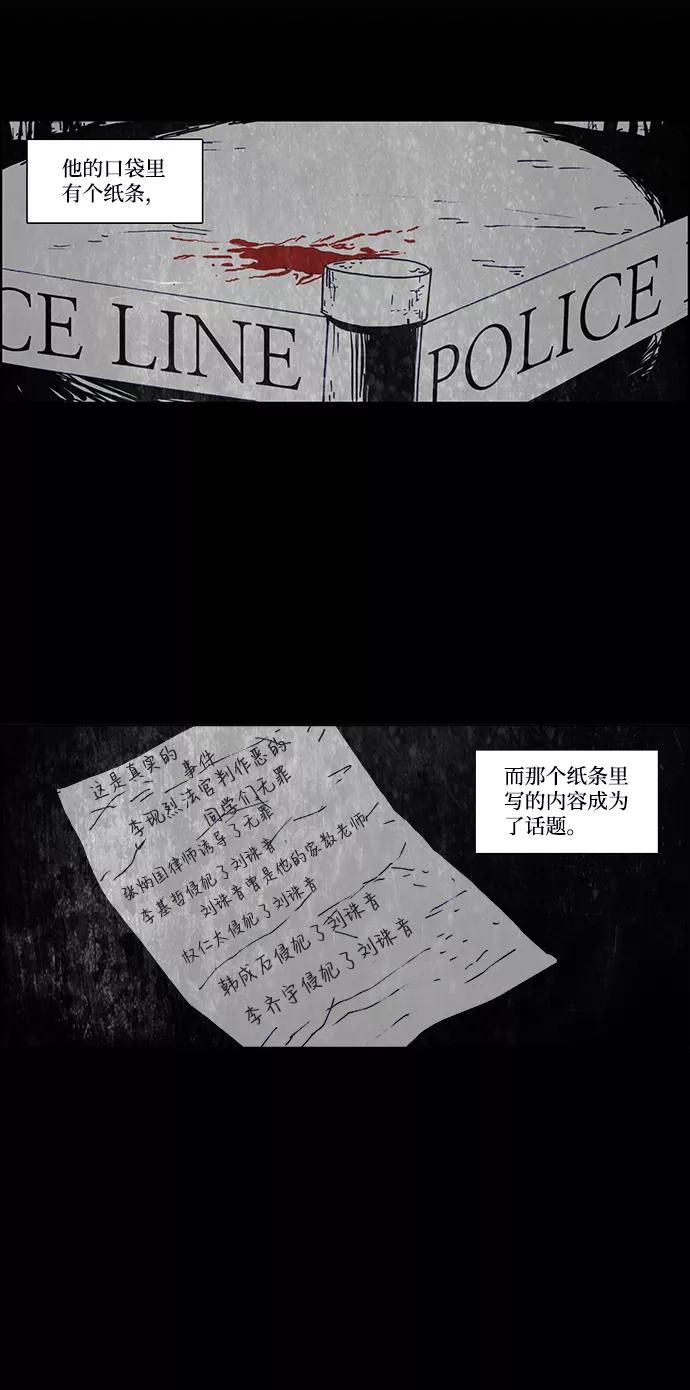 他的口袋里
有个纸条，
CE LINE
POLICE
而那个纸条里
写的内容成为
了话题。
这是真实的
事件
李现烈法官判作恶的
同学们无罪
张炳国律师诱导了无罪
李基哲侵犯了刘诛音，
刘诛音曾是他的家教老师
权仁太侵犯了刘诛音
韩成石侵犯了刘诛音
李齐宇侵犯了刘诛音